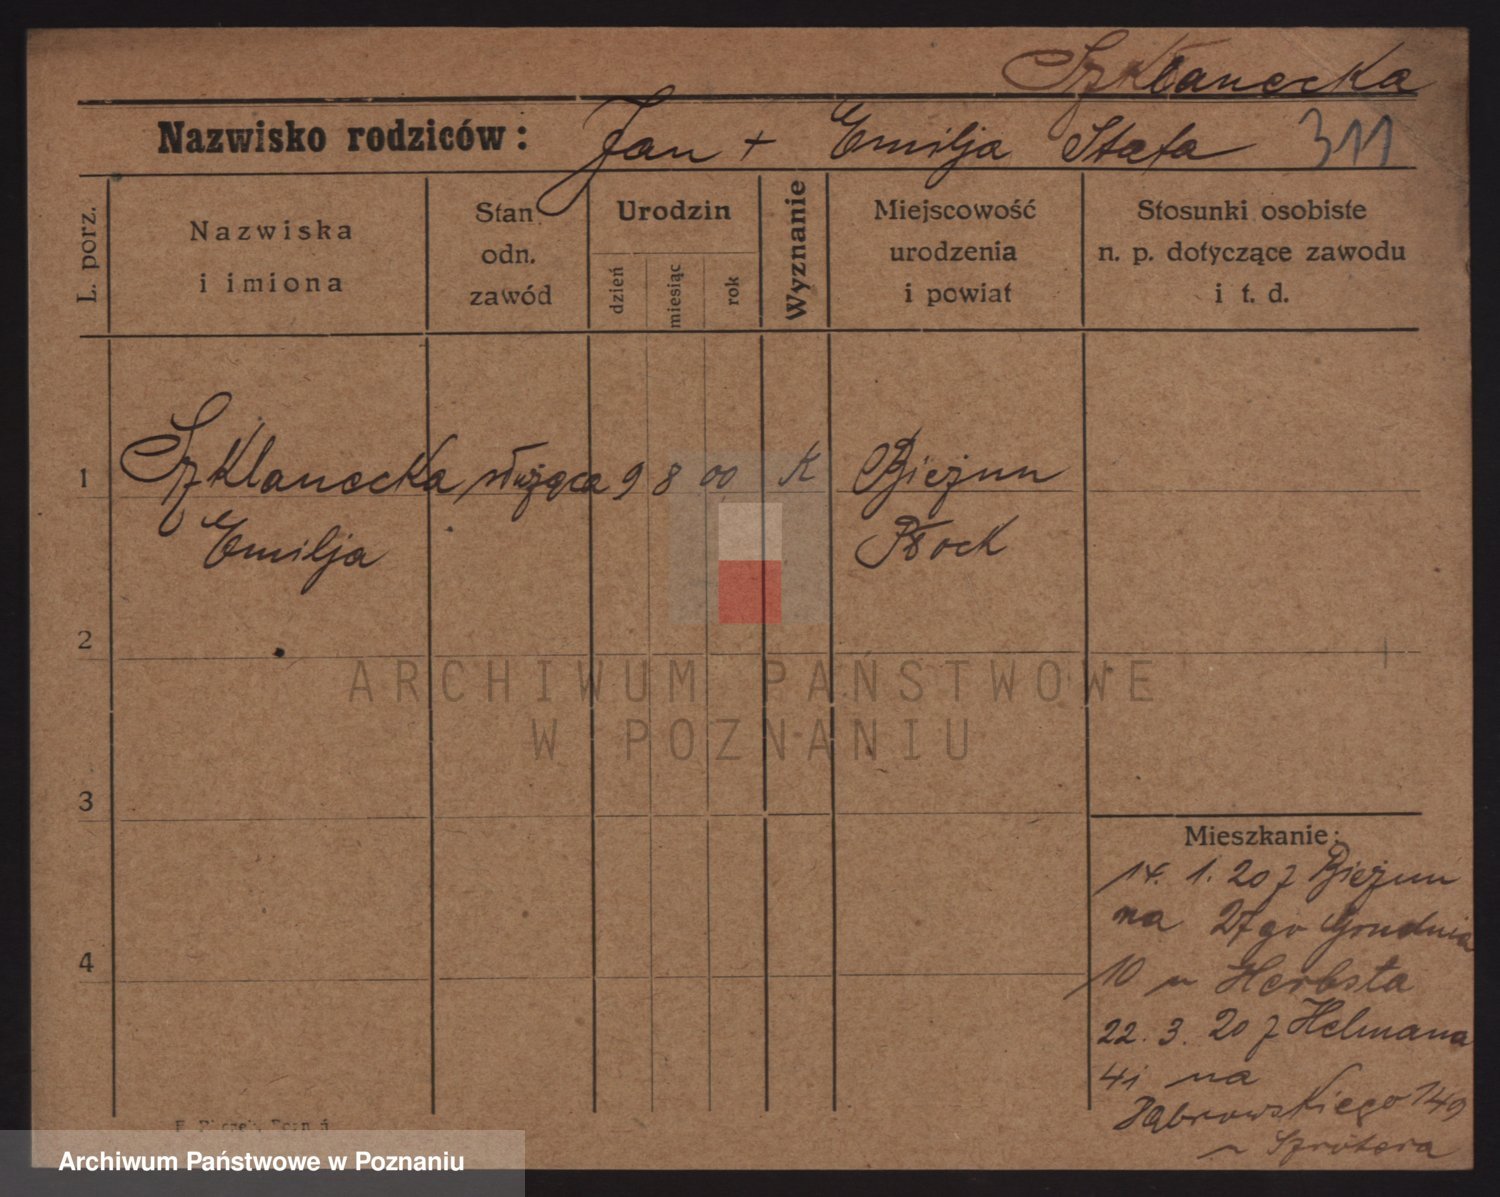 Szklanecka
Nazwisko rodziców: Jan + Emilja Stafa 311
L. porz.
Nazwiska
i imiona
Stan
odn.
zawód
Urodzin
dzień
miesiąc
rok
Wyznanie
Miejscowość
urodzenia
i powiat
Stosunki osobiste
n. p. dotyczące zawodu
i t. d.
1 Szklanecka służąca 9 8 00 K Bieżun
Emilja Płock
2
3
4
Mieszkanie:
14. 1. 20 z Bieżun
na 27go Grudnia
10 u Herbsta
22. 3. 20 z Helmana
4i na
Dąbrowskiego 149
u Szrötera
ARCHIWUM PAŃSTWOWE
W POZNANIU
Archiwum Państwowe w Poznaniu